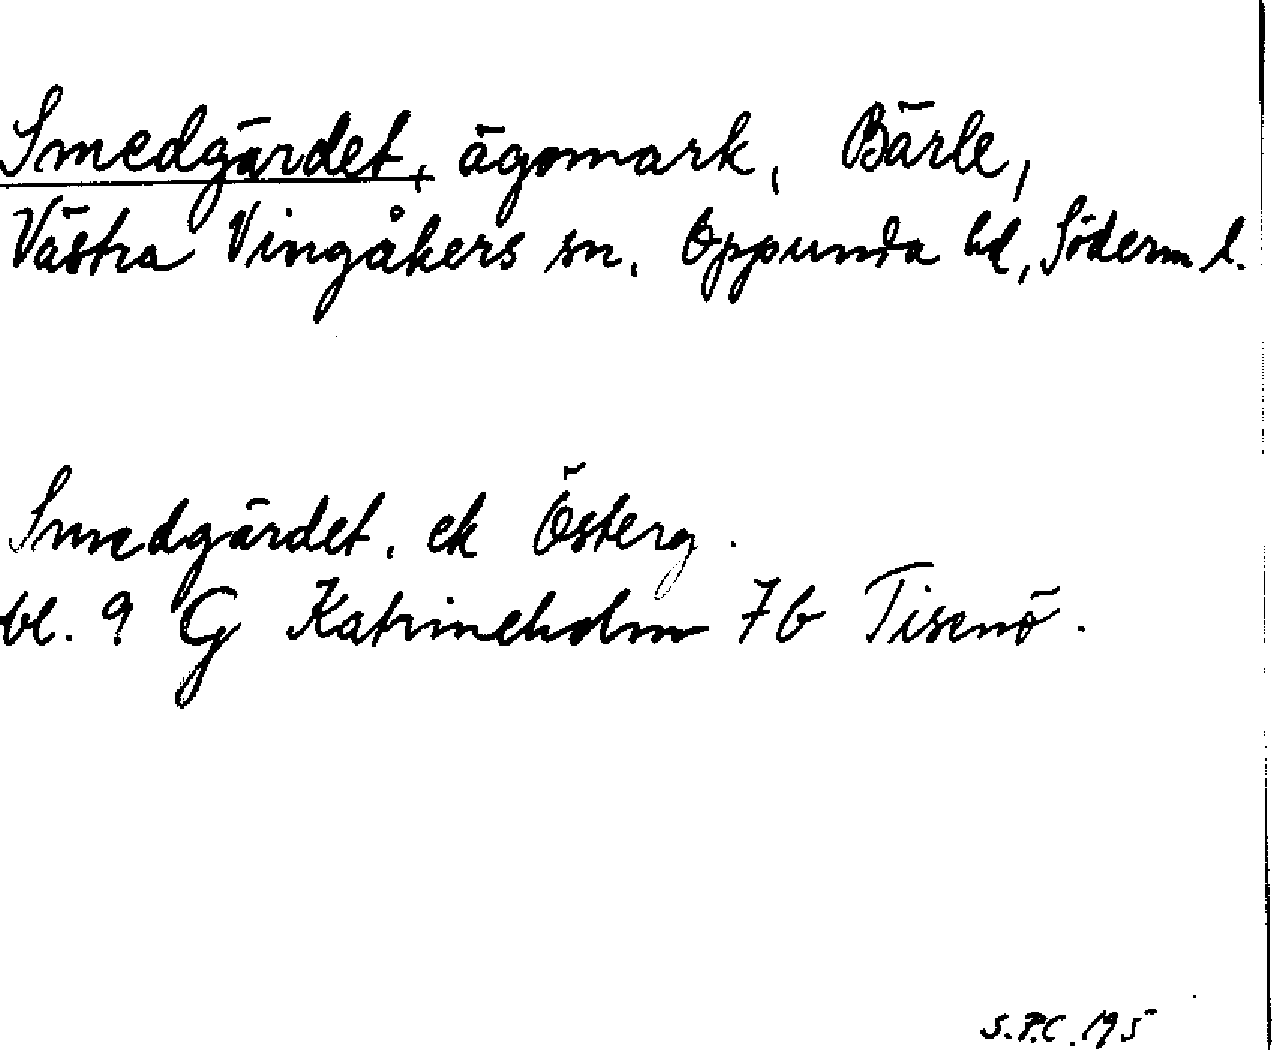 Smedgärdet, ägomark, Bärle,
Västra Vingåkers sn, Oppunda hd, Söderm l.
Smedgärdet, ek Österg.
bl. 9 G Katrineholm 7b Tisenö.
S.P.C. 195